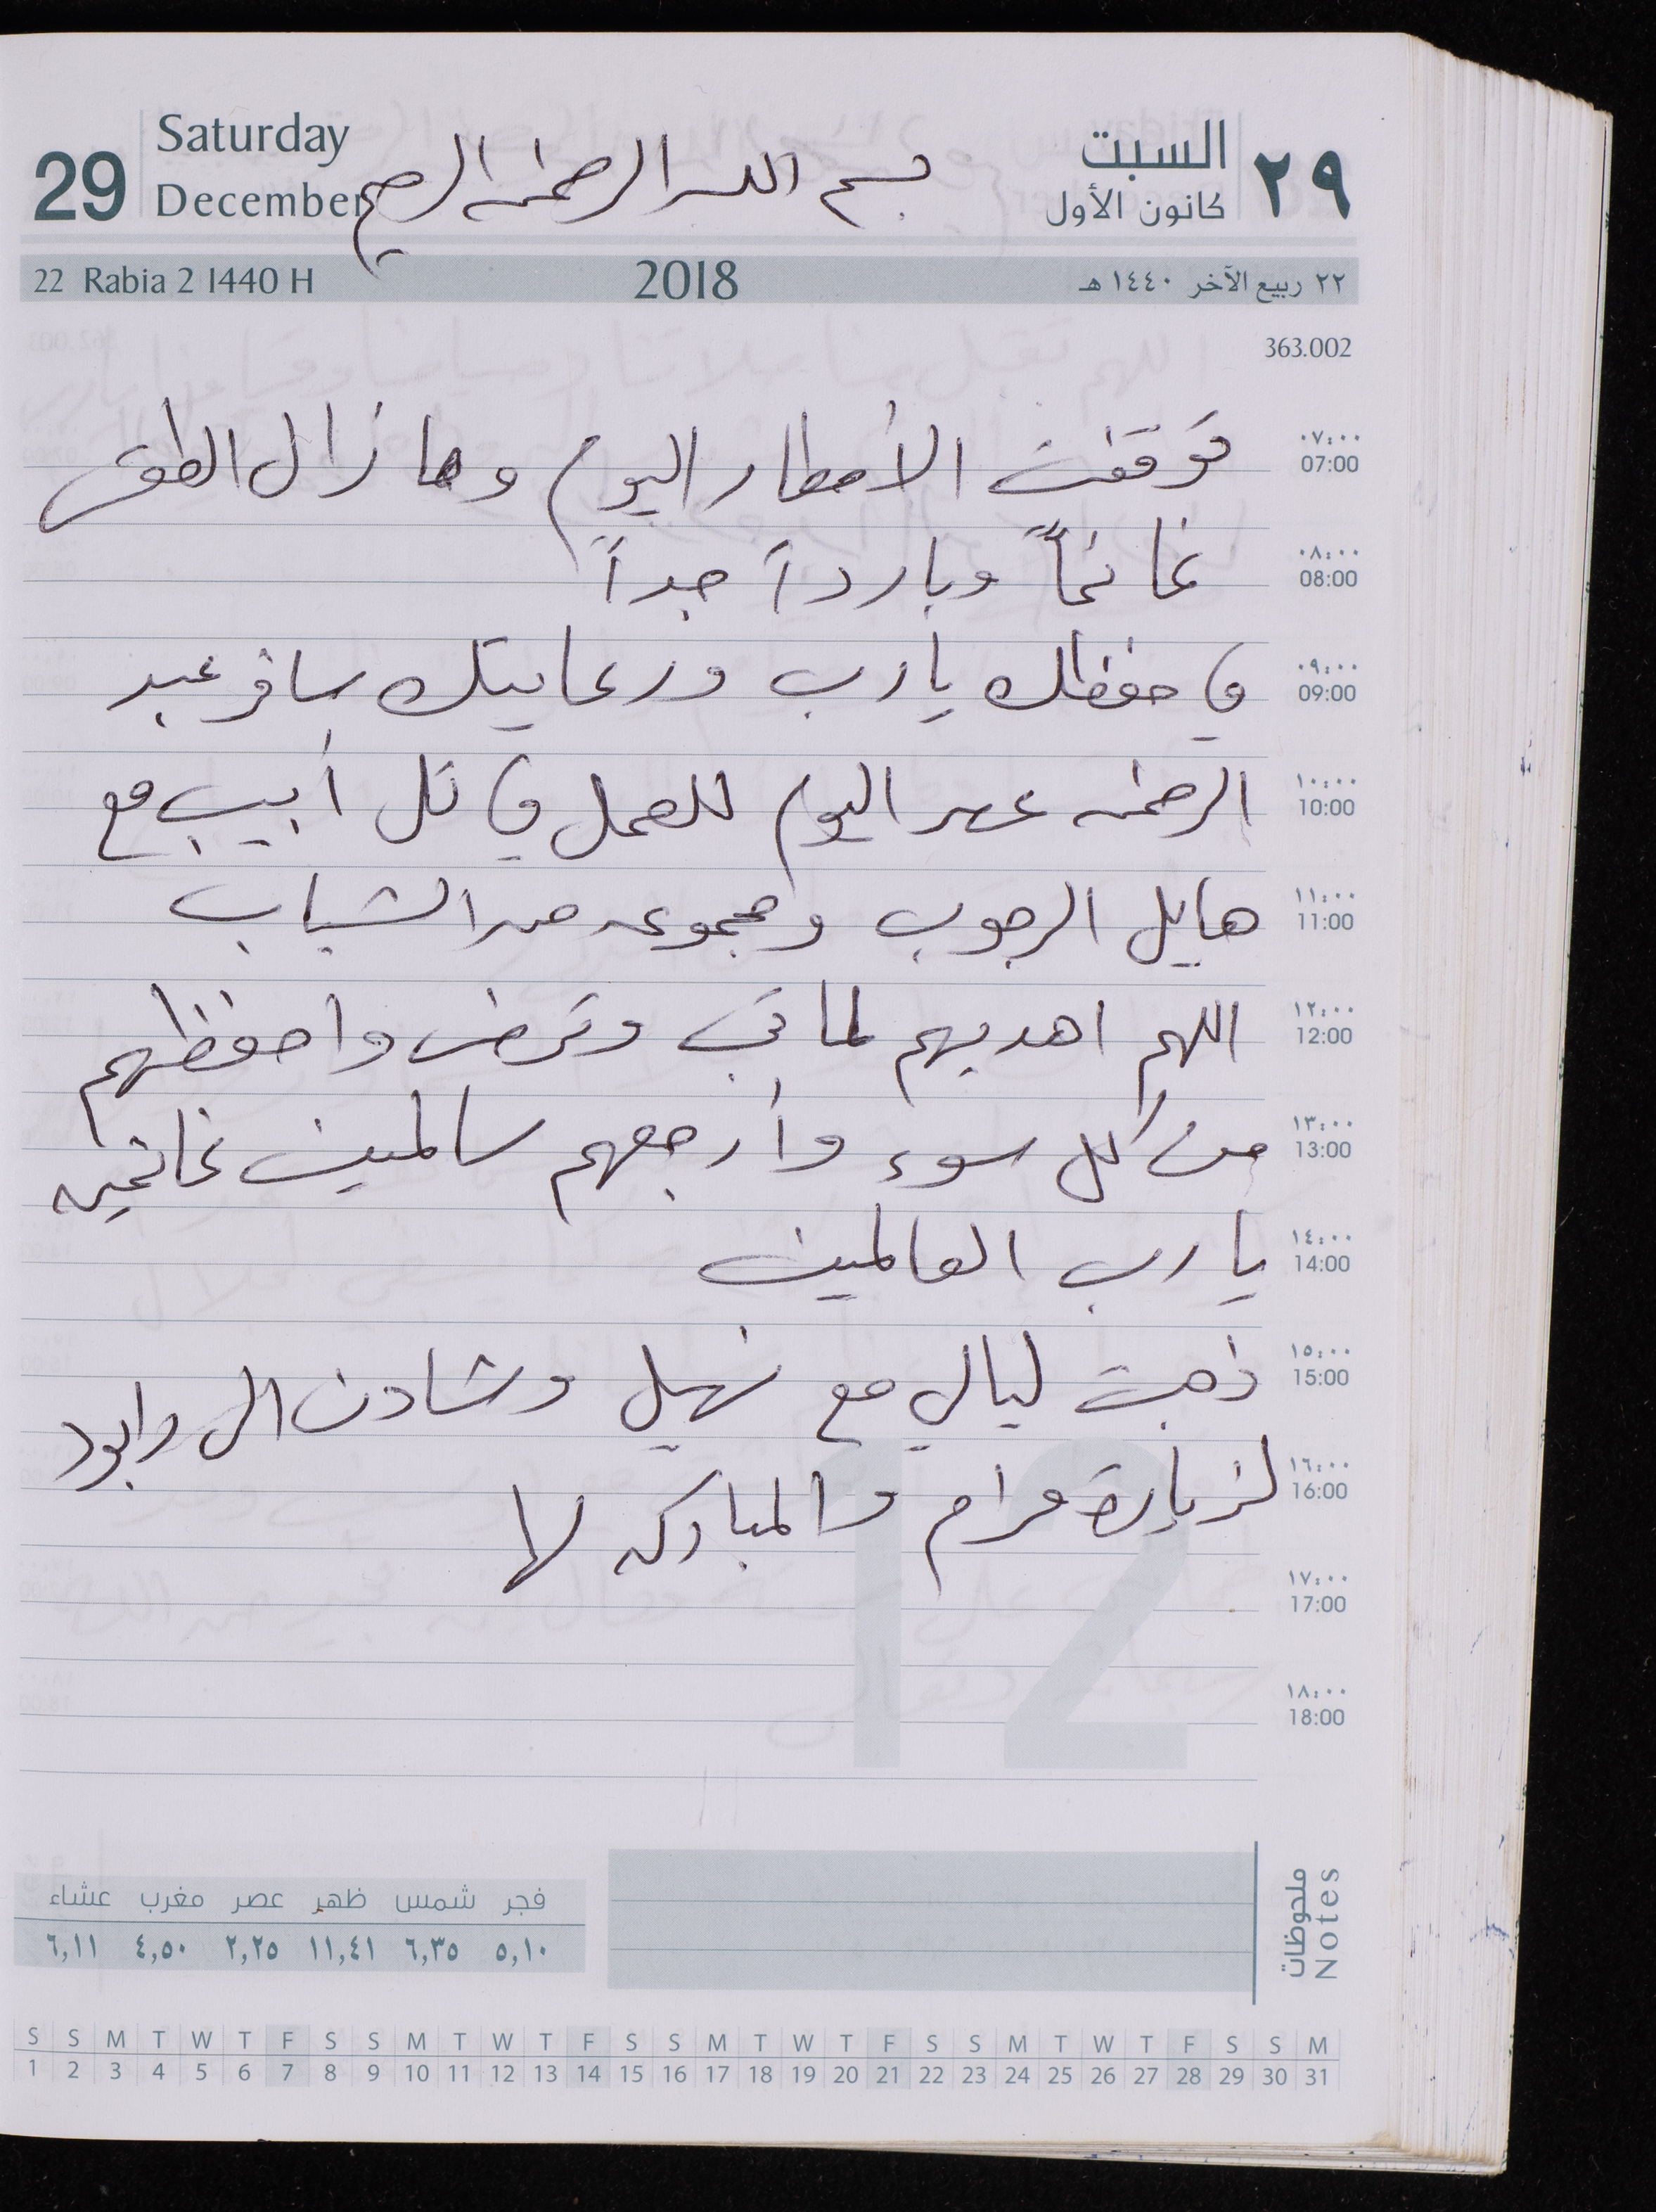 29 Saturday December
بسم الله الرحمن الرحيم
السبت ٢٩
كانون الأول
22 Rabia 2 1440 H 2018 ٢٢ ربيع الآخر ١٤٤٠ هـ
363.002
توقفت الأمطار اليوم وما زال الطقس
٠٧:٠٠ 07:00
غائماً وبارداً جداً
٠٨:٠٠ 08:00
في حفظك يارب ورعايتك سافر عبد
٠٩:٠٠ 09:00
الرحمن عصر اليوم للعمل في تل أبيب مع
١٠:٠٠ 10:00
هايل الرجوب ومجموعه من الشباب
١١:٠٠ 11:00
اللهم اهديهم لما تحب وترضى واحفظهم
١٢:٠٠ 12:00
من كل سوء وأرجعهم سالمين غانمين
١٣:٠٠ 13:00
يا رب العالمين
١٤:٠٠ 14:00
ذهبت ليالي مع نهيل وشادن الى رابود
١٥:٠٠ 15:00
لزيارة مرام والمباركه لها
١٦:٠٠ 16:00
١٧:٠٠ 17:00
١٨:٠٠ 18:00
12
ملحوظات
Notes
فجر شمس ظهر عصر مغرب عشاء
٥,١٠ ٦,٣٥ ١١,٤١ ٢,٢٥ ٤,٥٠ ٦,١١
S S M T W T F S S M T W T F S S M T W T F S S M T W T F S S M
1 2 3 4 5 6 7 8 9 10 11 12 13 14 15 16 17 18 19 20 21 22 23 24 25 26 27 28 29 30 31